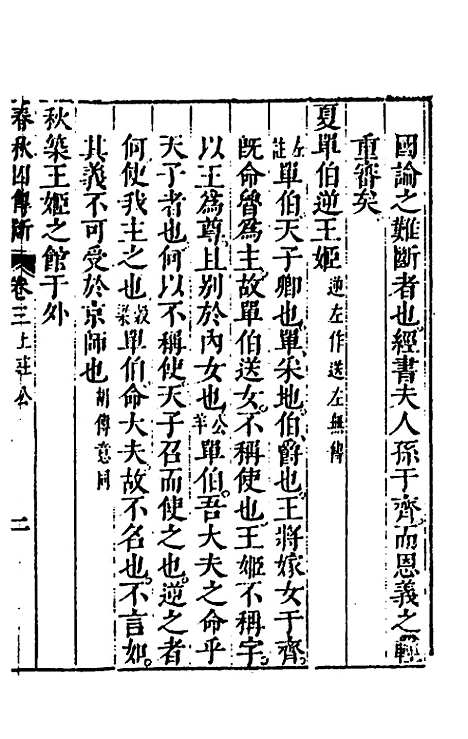 國論之難斷者也經書夫人孫于齊而恩義之輕
重審矣
夏單伯逆王姬 逆左作送左無傳
左註單伯天子卿也單采地伯爵也王將嫁女于齊
旣命魯爲主故單伯送女不稱使也王姬不稱字
以王爲尊且别於內女也公羊單伯吾大夫之命乎
天子者也何以不稱使天子召而使之也逆之者
何使我主之也穀梁單伯命大夫故不名也不言如
其義不可受於京師也胡傳意同
秋築王姬之館于外
春秋四傳斷 卷三上莊公 二